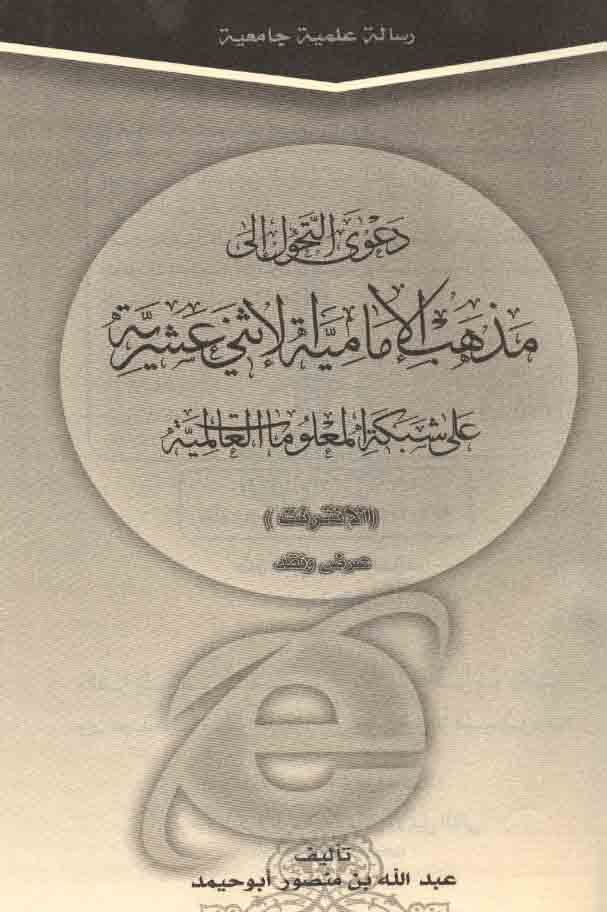 رسالة علمية جامعية
دَعْوَى التَّحَوُّل إلى
مَذهَب الإمَامِيَّة الإثنَي عَشَرِيَّة
عَلَى شَبَكَة المَعْلُومَات العَالَمِيَّة
((الإنترنت))
عرض ونقد
تأليف
عبد الله بن منصور أبوحيمد